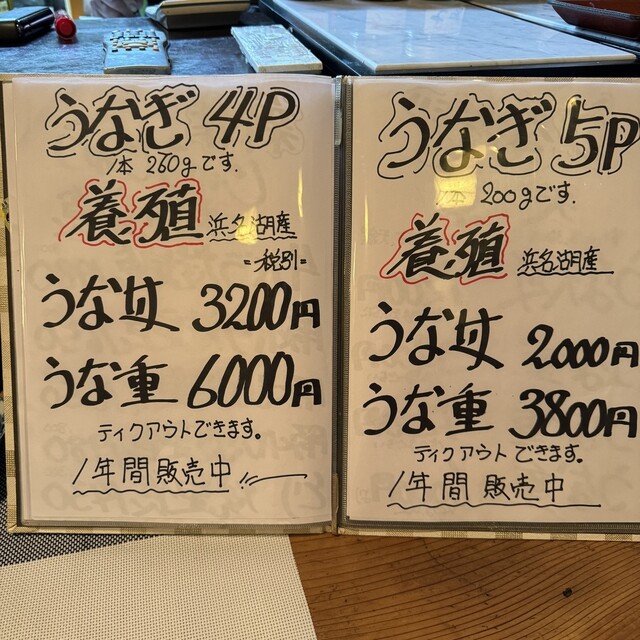 うなぎ 4P
1本 260gです.
養殖 浜名湖産
=税別=
うな丼 3200円
うな重 6000円
テイクアウトできます。
1年間販売中
うなぎ 5P
1本 200gです.
養殖 浜名湖産
うな丼 2000円
うな重 3800円
テイクアウトできます。
1年間販売中